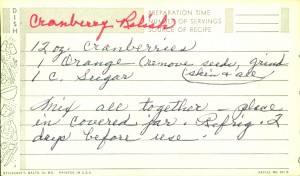 DISH
Cranberry Relish
PREPARATION TIME
NUMBER OF SERVINGS
SOURCE OF RECIPE
12 oz. Cranberries
1 Orange (remove seeds, grind
1 C. Sugar (skin & all
Mix all together – place
in covered jar. Refrig. 2
days before use.
PRINTED IN U.S.A.